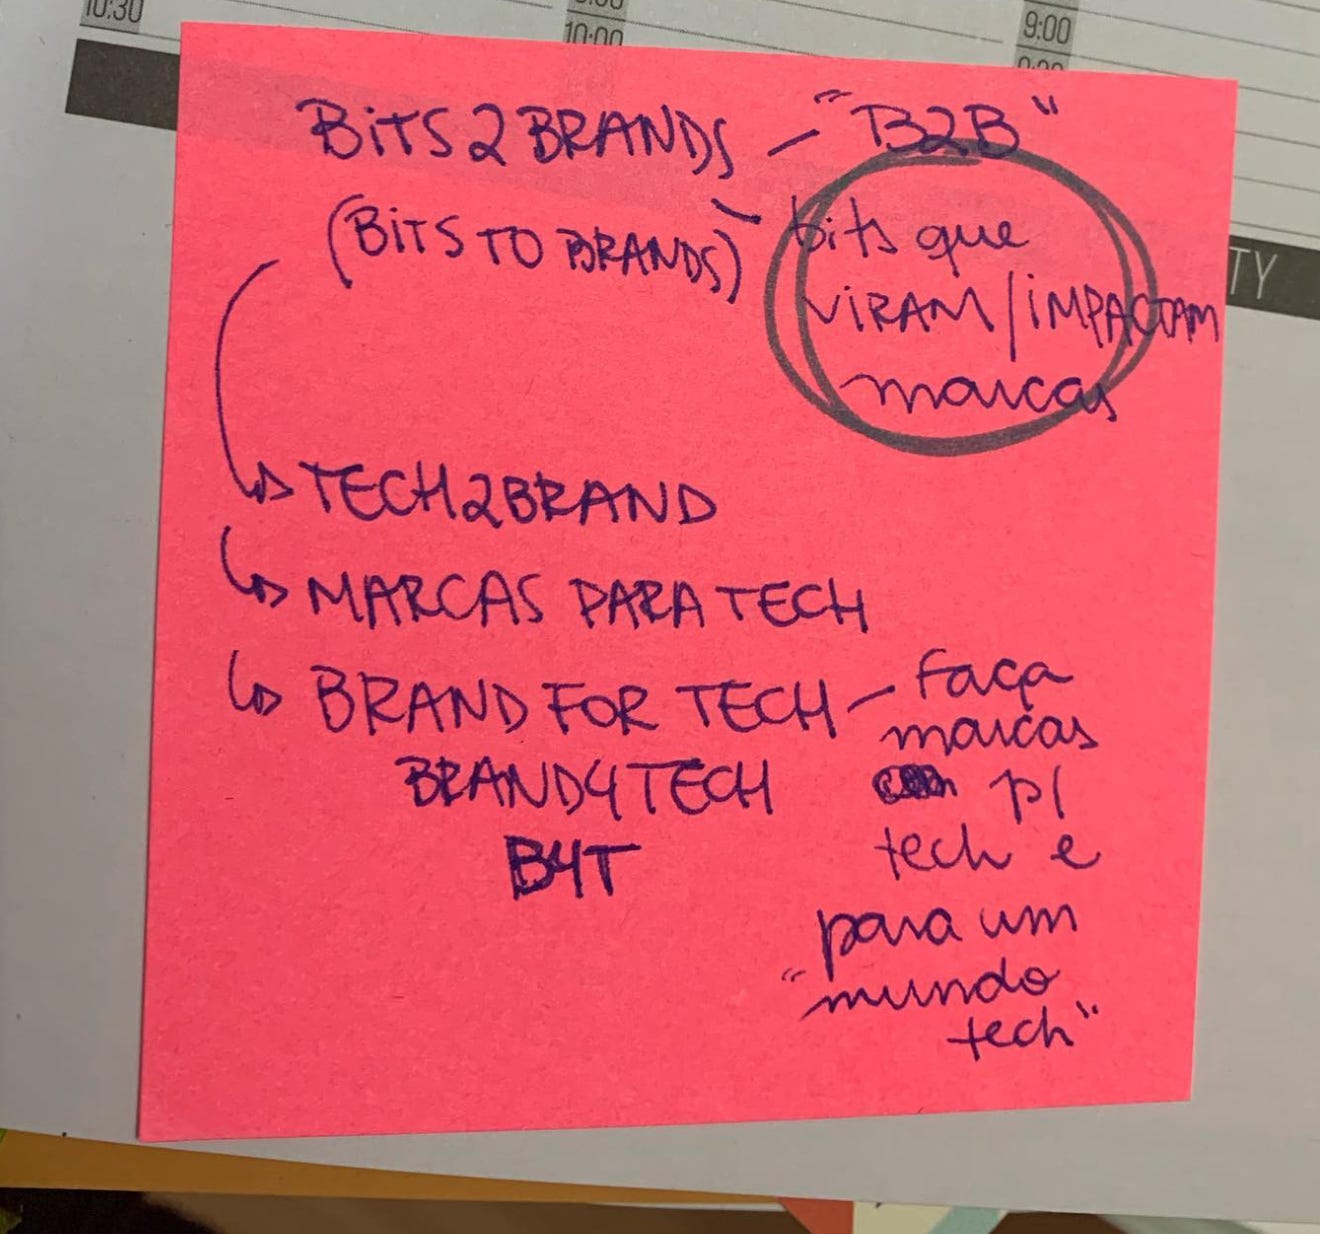 10:30
10:00
9:00
BiTS2BRANDS – "B2B"
(BiTS TO BRANDS) – bits que
ViRAM/iMPACTAM
marcas
TY
↳ TECH2BRAND
↳ MARCAS PARA TECH
↳ BRAND FOR TECH – faça
marcas
BRAND4TECH p/
B4T tech e
para um
"mundo
tech"